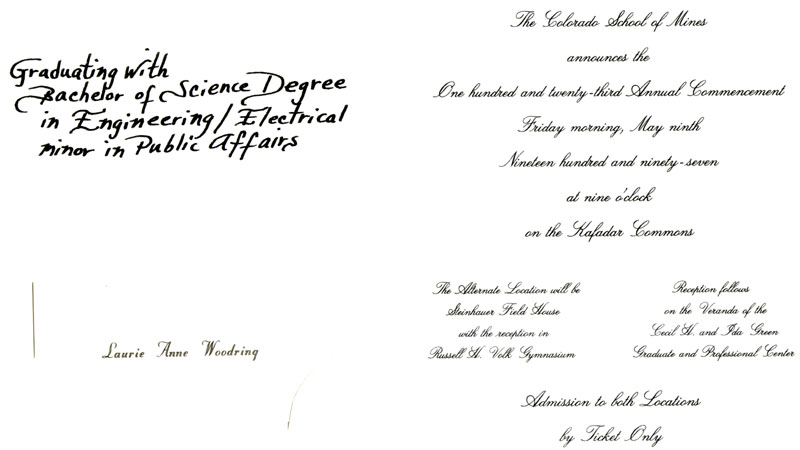 Graduating with
Bachelor of Science Degree
in Engineering/Electrical
minor in Public Affairs
Laurie Anne Woodring
The Colorado School of Mines
announces the
One hundred and twenty-third Annual Commencement
Friday morning, May ninth
Nineteen hundred and ninety-seven
at nine o'clock
on the Kafadar Commons
The Alternate Location will be
Steinhauer Field House
with the reception in
Russell H. Volk Gymnasium
Reception follows
on the Veranda of the
Cecil H. and Ida Green
Graduate and Professional Center
Admission to both Locations
by Ticket Only